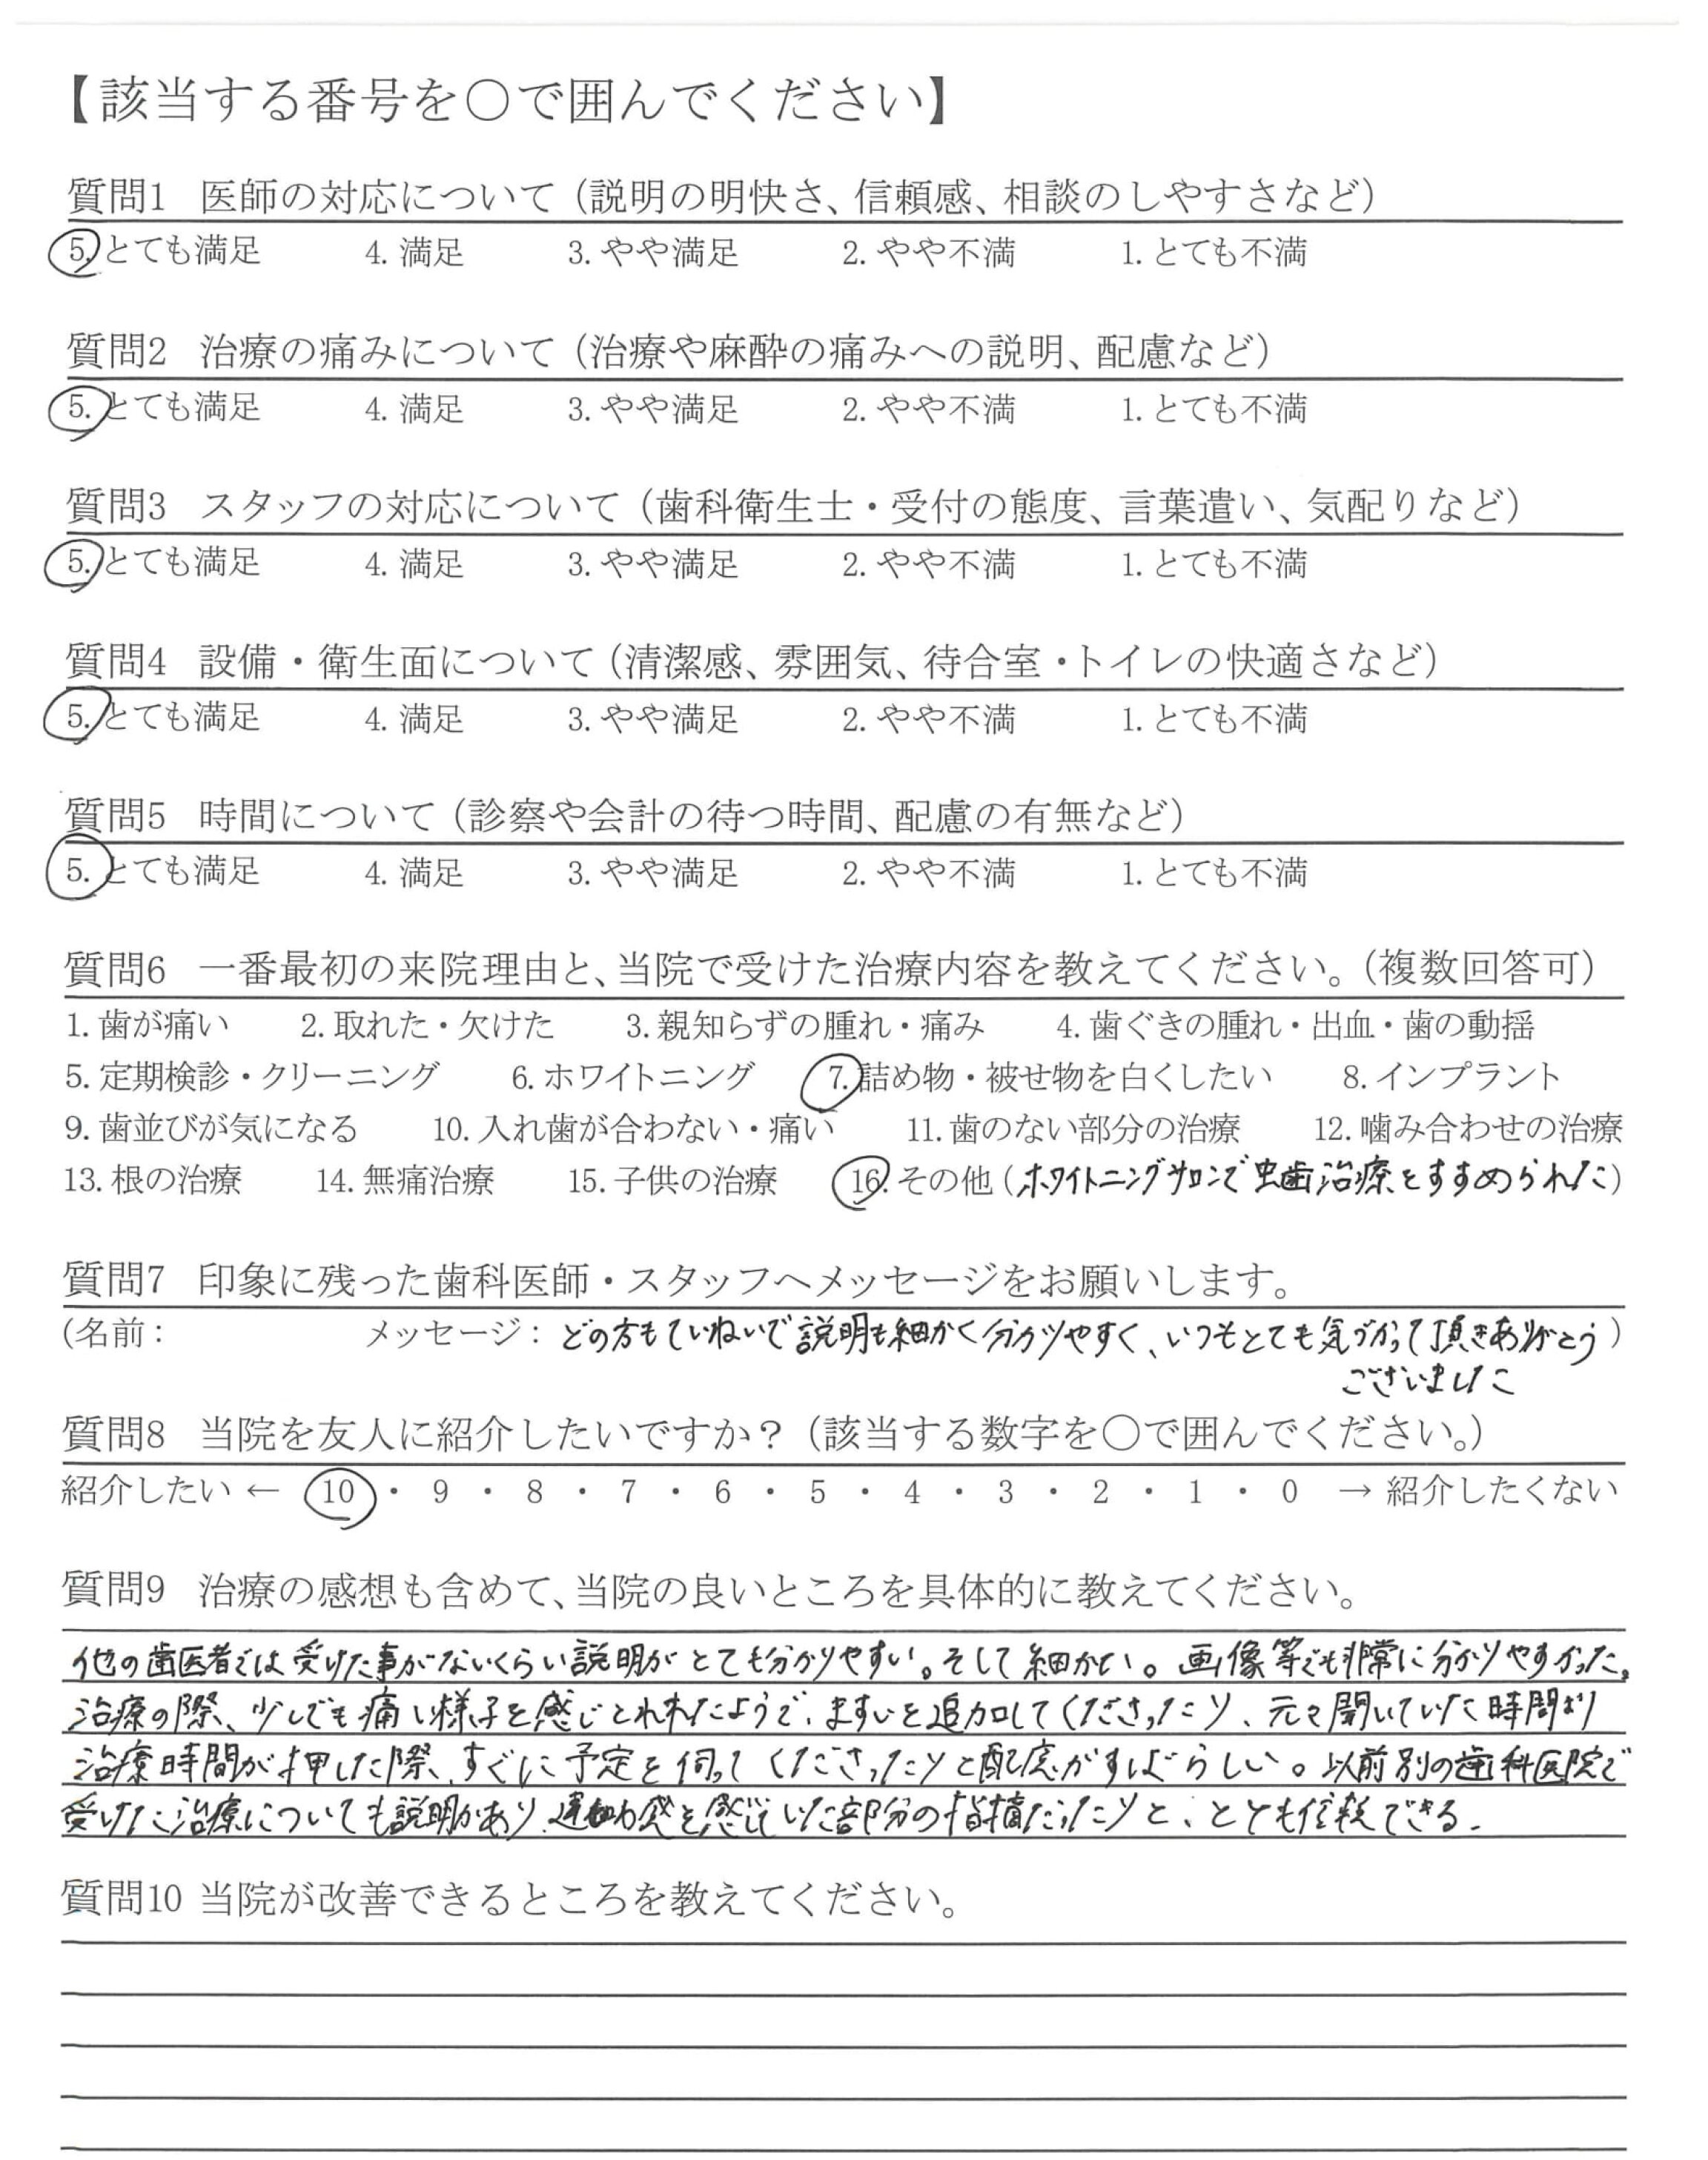 【該当する番号を〇で囲んでください】
質問1 医師の対応について（説明の明快さ、信頼感、相談のしやすさなど）
5. とても満足 4. 満足 3. やや満足 2. やや不満 1. とても不満
質問2 治療の痛みについて（治療や麻酔の痛みへの説明、配慮など）
5. とても満足 4. 満足 3. やや満足 2. やや不満 1. とても不満
質問3 スタッフの対応について（歯科衛生士・受付の態度、言葉遣い、気配りなど）
5. とても満足 4. 満足 3. やや満足 2. やや不満 1. とても不満
質問4 設備・衛生面について（清潔感、雰囲気、待合室・トイレの快適さなど）
5. とても満足 4. 満足 3. やや満足 2. やや不満 1. とても不満
質問5 時間について（診察や会計の待つ時間、配慮の有無など）
5. とても満足 4. 満足 3. やや満足 2. やや不満 1. とても不満
質問6 一番最初の来院理由と、当院で受けた治療内容を教えてください。（複数回答可）
1. 歯が痛い 2. 取れた・欠けた 3. 親知らずの腫れ・痛み 4. 歯ぐきの腫れ・出血・歯の動揺
5. 定期検診・クリーニング 6. ホワイトニング 7. 詰め物・被せ物を白くしたい 8. インプラント
9. 歯並びが気になる 10. 入れ歯が合わない・痛い 11. 歯のない部分の治療 12. 噛み合わせの治療
13. 根の治療 14. 無痛治療 15. 子供の治療 16. その他（ホワイトニングサロンで虫歯治療をすすめられた）
質問7 印象に残った歯科医師・スタッフへメッセージをお願いします。
（名前： メッセージ：どの方もていねいで説明も細かく分かりやすく、いつもとても気づかって頂きありがとう）
ございました
質問8 当院を友人に紹介したいですか？（該当する数字を〇で囲んでください。）
紹介したい ← 10 ・ 9 ・ 8 ・ 7 ・ 6 ・ 5 ・ 4 ・ 3 ・ 2 ・ 1 ・ 0 → 紹介したくない
質問9 治療の感想も含めて、当院の良いところを具体的に教えてください。
他の歯医者では受けた事がないくらい説明がとても分かりやすい。そして細かい。画像等でも非常に分かりやすかった。
治療の際、少しでも痛い様子を感じとれれたようで、ますいを追加してくださったり、元々聞いていた時間より
治療時間が押した際、すぐに予定を伺ってくださったりと配慮がすばらしい。以前別の歯科医院で
受けた治療についても説明があり、違和感を感じていた部分の指摘だったりと、とても信頼できる。
質問10 当院が改善できるところを教えてください。